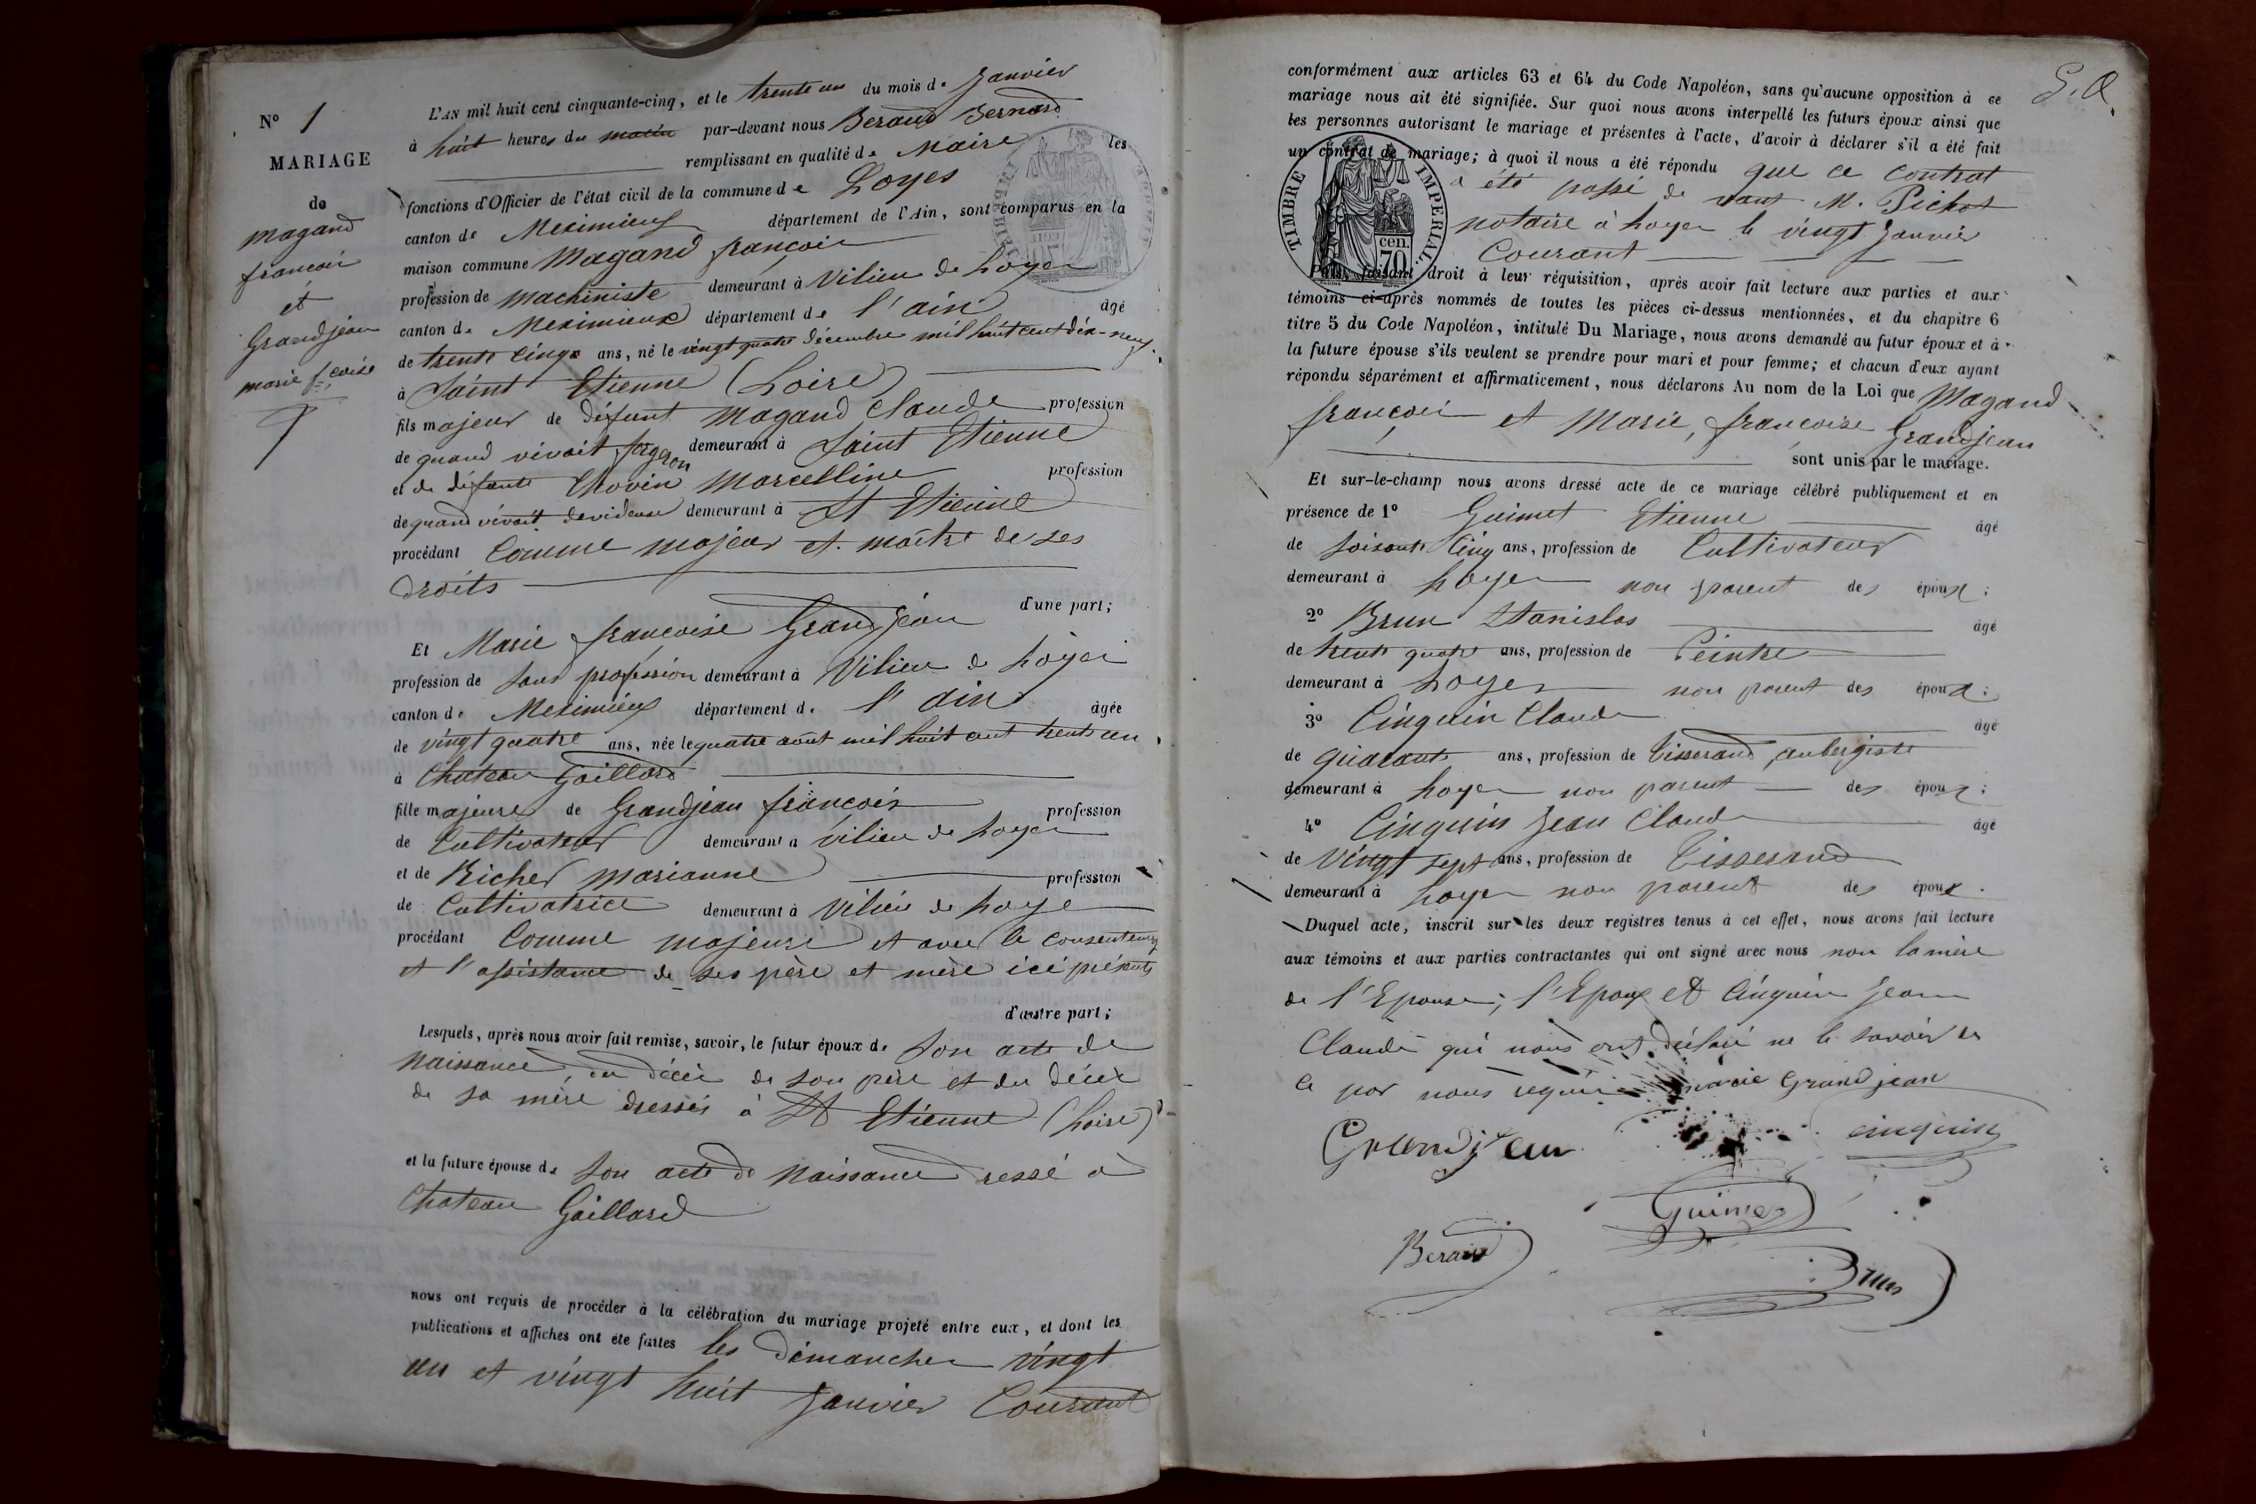 N° 1
MARIAGE
de
Magand
françois
et
Grandjean
marie f.coise
L'AN mil huit cent cinquante-cinq, et le trente un du mois de Janvier
à huit heures du matin par-devant nous Beraud Bernard
remplissant en qualité de Maire les
fonctions d'Officier de l'état civil de la commune de Loyes
canton de Meximieux département de l'Ain, sont comparus en la
maison commune Magand françois
profession de machiniste demeurant à Vilieu de Loyes
canton de Meximieux département de l'ain âgé
de trente cinq ans, né le vingt quatre décembre mil huit cent dix-neuf
à Saint Etienne (Loire)
fils majeur de défunt Magand Claude profession
de quand vivait forgeron demeurant à Saint Etienne
et de défunte Chovin Marcelline profession
de quand vivait devideuse demeurant à St Etienne
procédant Comme majeur et maître de ses
droits
d'une part;
Et Marie françoise Grandjean
profession de sans profession demeurant à Vilieu de Loyes
canton de Meximieux département de l'ain âgée
de vingt quatre ans, née le quatre août mil huit cent trente un
à Chateau Gaillard
fille majeure de Grandjean françois profession
de Cultivateur demeurant à Vilieu de Loyes
et de Richer marianne profession
de Cultivatrice demeurant à Vilieu de Loye
procédant Comme majeure et avec le consentement
et l'assistance de ses père et mère ici présents
d'autre part;
Lesquels, après nous avoir fait remise, savoir, le futur époux de son acte de
naissance, du décès de son père et du décès
de sa mère dressés à St Etienne (Loire)
et la future épouse de son acte de naissance dressé à
Chateau Gaillard
nous ont requis de procéder à la célébration du mariage projeté entre eux, et dont les
publications et affiches ont été faites les dimanches vingt
un et vingt huit Janvier Courant
conformément aux articles 63 et 64 du Code Napoléon, sans qu'aucune opposition à ce
mariage nous ait été signifiée. Sur quoi nous avons interpellé les futurs époux ainsi que
les personnes autorisant le mariage et présentes à l'acte, d'avoir à déclarer s'il a été fait
un contrat de mariage; à quoi il nous a été répondu que ce contrat
a été passé de vant M. Pichot
notaire à Loyes le vingt Janvier
Courant
TIMBRE IMPERIAL
cen.
70
Puis, faisant droit à leur réquisition, après avoir fait lecture aux parties et aux
témoins ci-après nommés de toutes les pièces ci-dessus mentionnées, et du chapitre 6
titre 5 du Code Napoléon, intitulé Du Mariage, nous avons demandé au futur époux et à
la future épouse s'ils veulent se prendre pour mari et pour femme; et chacun d'eux ayant
répondu séparément et affirmativement, nous déclarons Au nom de la Loi que Magand
françois et Marie, françoise Grandjean
sont unis par le mariage.
Et sur-le-champ nous avons dressé acte de ce mariage célébré publiquement et en
présence de 1° Guimet Etienne âgé
de soisante cinq ans, profession de Cultivateur
demeurant à Loyes non parent des époux;
2° Brun Stanislas âgé
de trente quatre ans, profession de Peintre
demeurant à Loyes non parent des époux;
3° Cinquin Claude âgé
de quarante ans, profession de tisserand, aubergiste
demeurant à Loyes non parent des époux;
4° Cinquin Jean Claude âgé
de Vingt sept ans, profession de Tisserand
demeurant à Loyes non parent des époux.
Duquel acte, inscrit sur les deux registres tenus à cet effet, nous avons fait lecture
aux témoins et aux parties contractantes qui ont signé avec nous non la mère
de l'Epouse; l'Epoux et Cinquin Jean
Claude qui nous ont déclaré ne le savoir de
ce par nous requis marie Grandjean
Grandjean cinquin
Guimet
Beraud
Brun